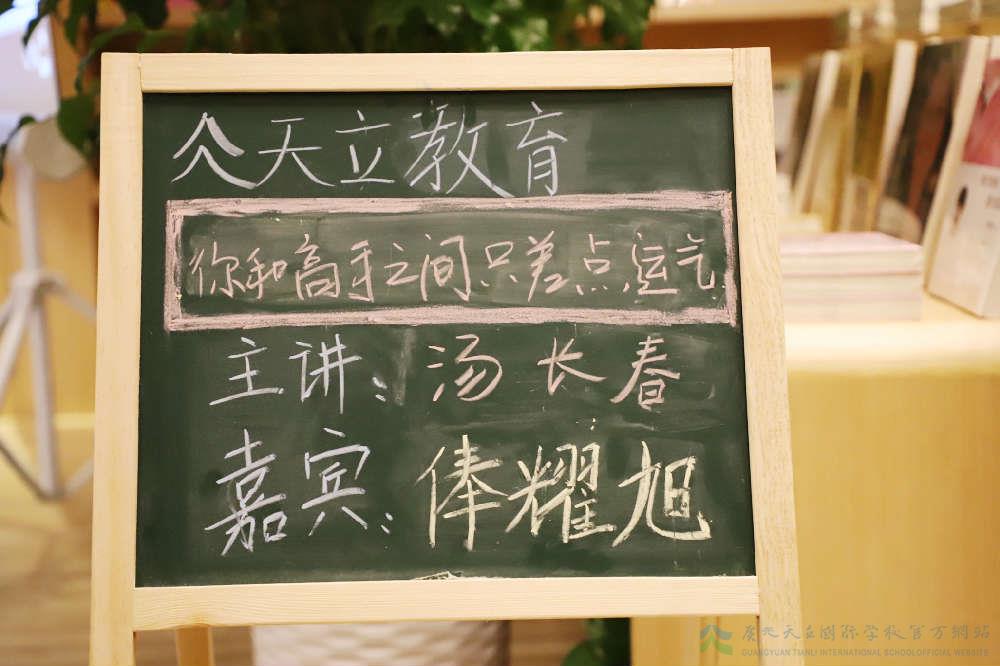 天立教育
你和高手之间只差点运气
主讲：汤长春
嘉宾：俸耀旭
广元天立国际学校官方網站
GUANGYUAN TIANLI INTERNATIONAL SCHOOL OFFICIAL WEBSITE